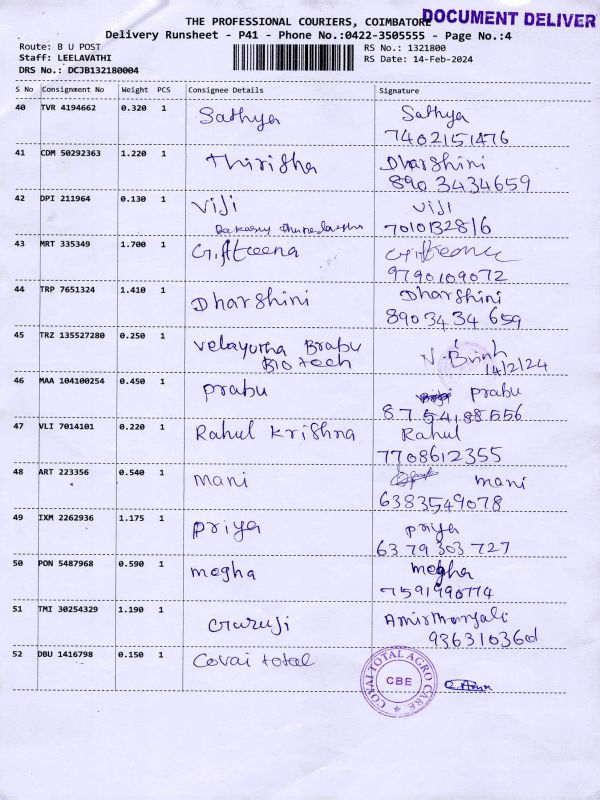 THE PROFESSIONAL COURIERS, COIMBATORE
DOCUMENT DELIVER
Delivery Runsheet - P41 - Phone No.:0422-3505555 - Page No.:4
Route: B U POST
RS No.: 1321800
Staff: LEELAVATHI
RS Date: 14-Feb-2024
DRS No.: DCJB132180004
S No Consignment No Weight PCS Consignee Details Signature
40 TVR 4194662 0.320 1 Sathya Sathya
7402151476
41 CDM 50292363 1.220 1 Thirisha Dharshini
8903434659
42 DPI 211964 0.130 1 Viji Viji
7010132816
43 MRT 335349 1.700 1 Gifteena Gifteena
9790109072
44 TRP 7651324 1.410 1 Dharshini Dharshini
8903434659
45 TRZ 135527280 0.250 1 Velayutha Brabu
Bio tech 14/2/24
46 MAA 104100254 0.450 1 prabu prabu
8754188556
47 VLI 7014101 0.220 1 Rahul Krishna Rahul
7708612355
48 ART 223356 0.540 1 mani mani
6383549078
49 IXM 2262936 1.175 1 priya priya
6379303727
50 PON 5487968 0.590 1 megha megha
7591990774
51 TMI 30254329 1.190 1 Guruji
9363103600
52 DBU 1416798 0.150 1 Covai total
COVAI TOTAL AGRO CARE
CBE